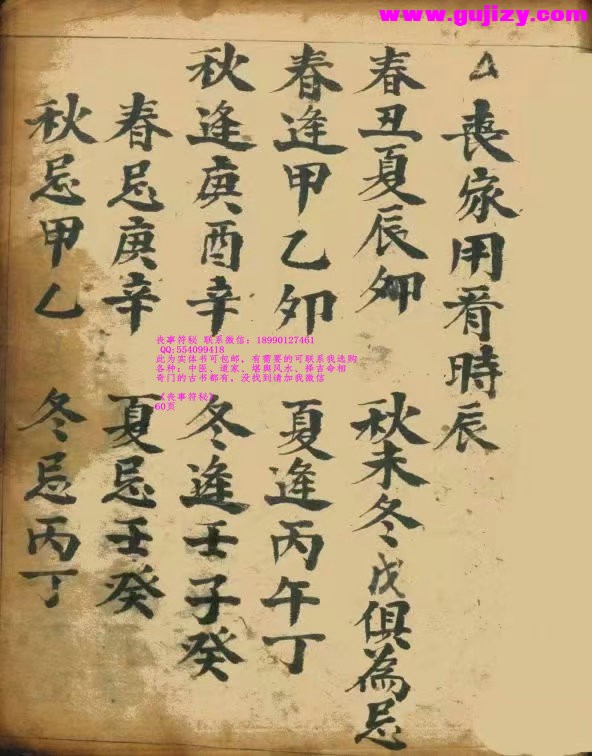 www.gujizy.com
△喪家用看時辰
春丑夏辰夘 秋未冬戌俱為忌
春逢甲乙夘 夏逢丙午丁
秋逢庚酉辛 冬逢壬子癸
春忌庚辛 夏忌壬癸
秋忌甲乙 冬忌丙丁
丧事符秘 联系微信：18990127461
QQ:554099418
此为实体书可包邮，有需要的可联系我选购
各种：中医、道家、堪舆风水、择吉命相
奇门的古书都有，没找到请加我微信
《丧事符秘》
60页